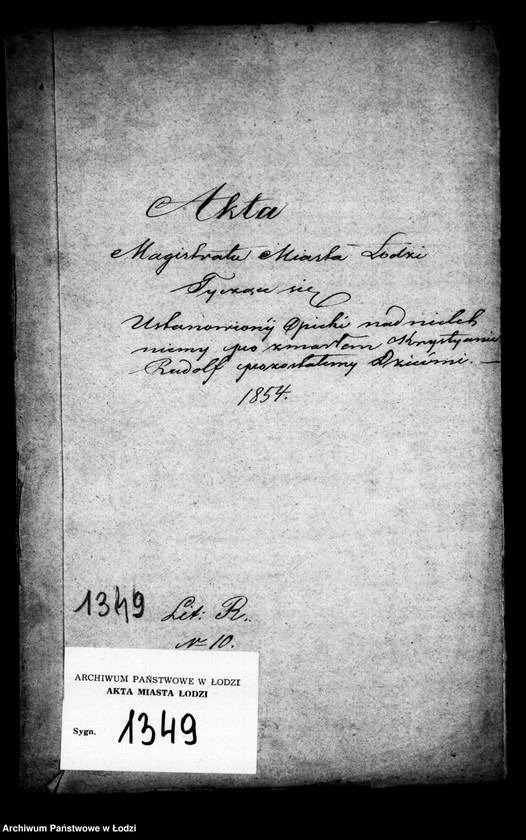 Akta
Magistratu Miasta Łodzi
Tyczące się
Ustanowionej Opieki nad nielet
niemy po zmarłem Krystyanie
Rudolf pozostałemy Dziećmi. —
1854.
1349 Lit: R.
No 10.
ARCHIWUM PAŃSTWOWE W ŁODZI
AKTA MIASTA ŁODZI
Sygn. 1349
Archiwum Państwowe w Łodzi